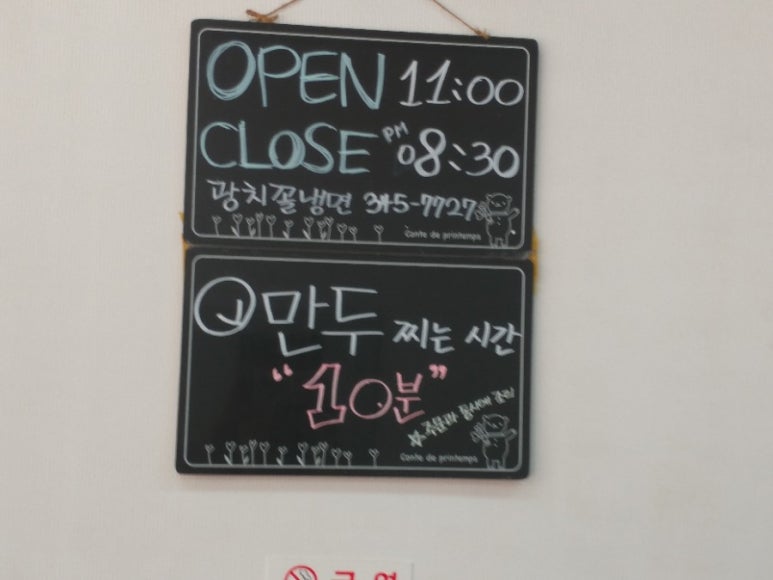 OPEN 11:00
CLOSE PM 08:30
광치꼴냉면 345-7727
Conte de printemps
만두 찌는 시간
“10분”
☆주문과 동시에 조리
Conte de printemps
금연